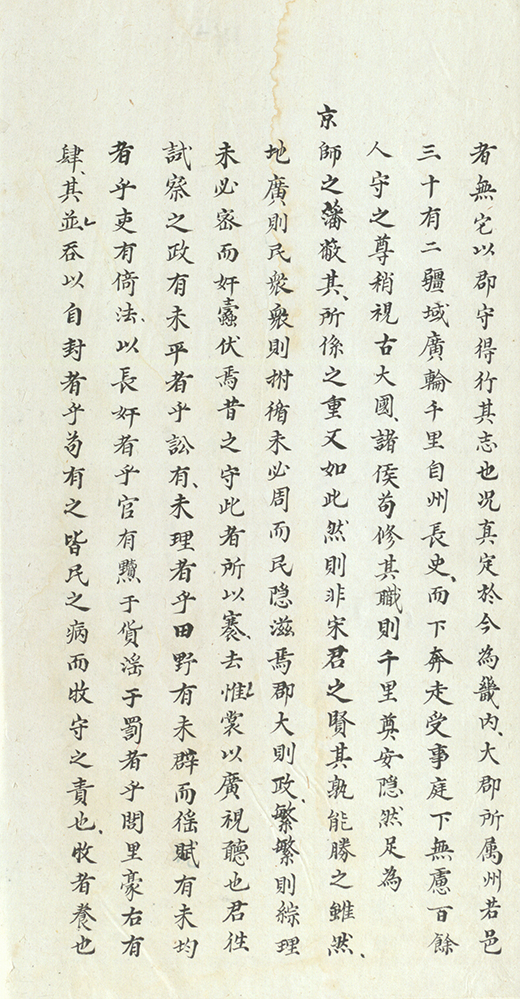 者無它以郡守得行其志也况真定於今為畿内大郡所属州若邑
三十有二疆域廣輪千里自州長吏而下奔走受事庭下無慮百餘
人守之尊稍視古大國諸侯苟修其職則千里奠安隱然足為
京師之藩蔽其所係之重又如此然則非宋君之賢其孰能勝之雖然
地廣則民衆衆則拊循未必周而民隐滋焉郡大則政繁繁則綜理
未必密而奸蠹伏焉昔之守此者所以褰去惟裳以廣視聽也君徃
試察之政有未平者乎訟有未理者乎田野有未辟而徭賦有未均
者乎吏有倚法以長奸者乎官有黷于貨滛于罰者乎閭里豪右有
肆其並吞以自封者乎苟有之皆民之病而牧守之責也牧者養也